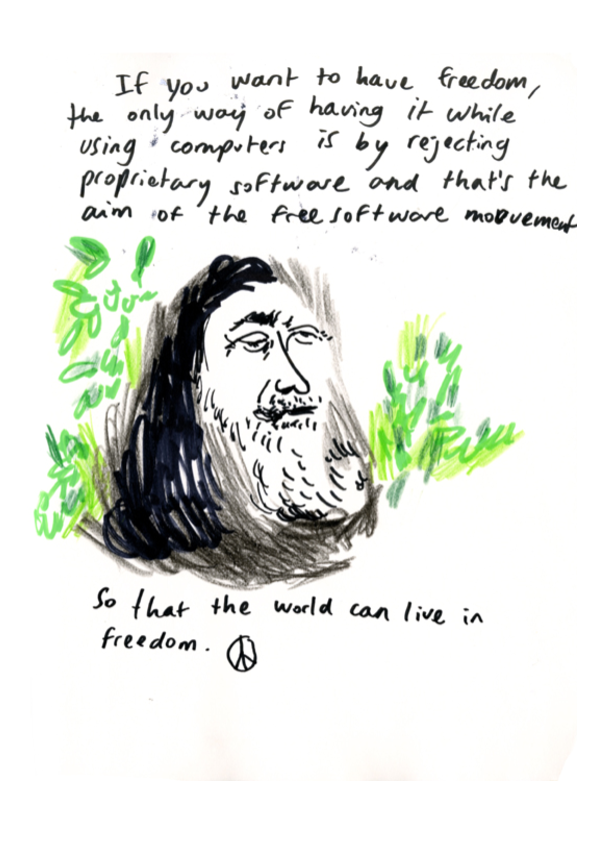 If you want to have freedom,
the only way of having it while
using computers is by rejecting
proprietary software and that's the
aim of the free software movement
So that the world can live in
freedom.